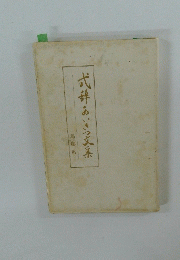 式辞あいさつ文集